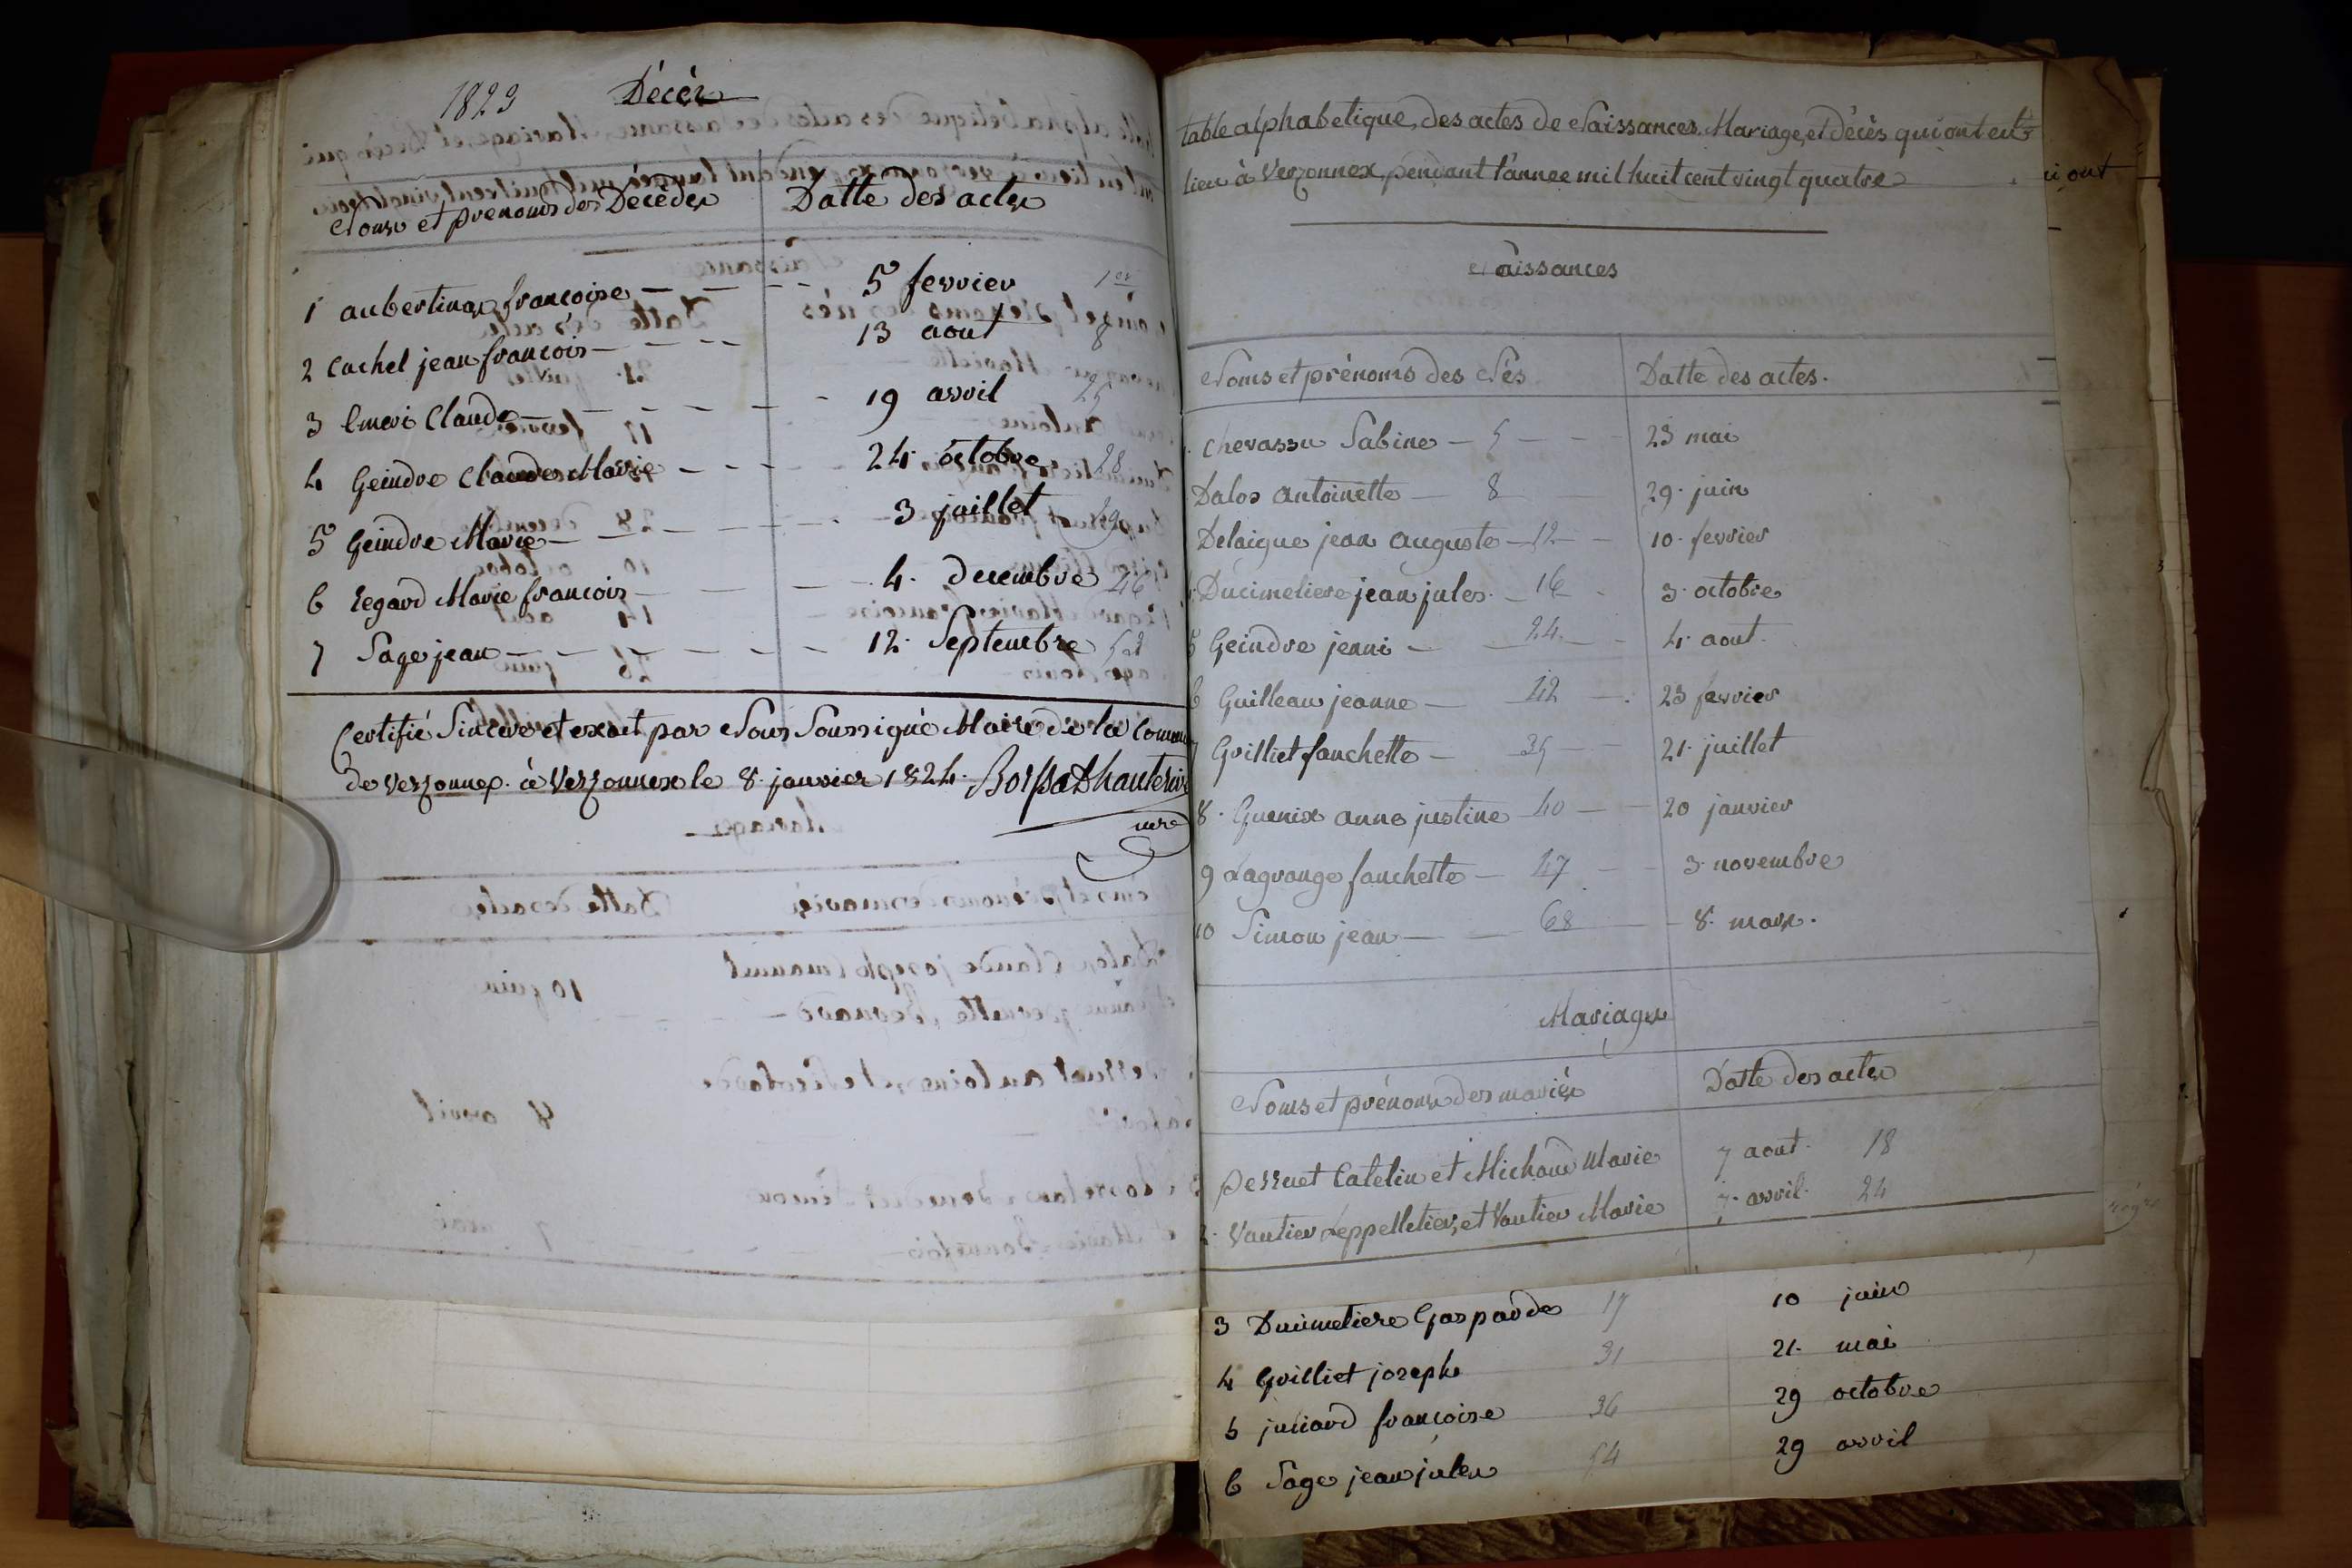 1823 Décès
Noms et prenoms des Decedes Datte des actes
1 aubertinax francoise 5 fevrier 1er
2 Cachet jean francois 13 aout 8
3 Emeri Claude 19 avril 25
4 Geindre Claude Marie 24 octobre 28
5 Geindre Marie 3 juillet 29
6 Regard Marie francois 4. decembre 46
7 Sage jean 12. Septembre
Certifié Sincere et exact par Nous Soussigné Maire de la Commune
de Verzonnex. à Verzonnex le 8. janvier 1824.
table alphabetique, des actes de Naissances, Mariage, et décès qui ont eu
lieu à Verzonnex pendant l'annee mil huit cent vingt quatre
ui ont
Naissances
Noms et prénoms des Nés Datte des actes.
Chevassu Sabine 5 23 mai
Dalos Antoinette 8 29. juin
Delaigue jean auguste 12 10. fevrier
Ducimetiere jean jules. 16 3. octobre
5 Geindre jenni 24 4. aout.
6 Guilleau jeanne 42 23 fevrier
7 Grilliet fanchette 35 21. juillet
8. Guenix anne justine 40 20 janvier
9 Lagrange fanchette 47 3. novembre
10 Simon jean 68 8. mars.
Mariages
Noms et prénoms des mariés Datte des actes
perruet Catelin et Michaud Marie 7 aout. 18
2. Vautier Leppelletier, et Vautier Marie 7. avril. 24
3 Ducimetiere Gaspard 17 10 juin
4 Grilliet joseph 31 21. mai
5 juliard francoise 36 29 octobre
6 Sage jean jules 54 29 avril